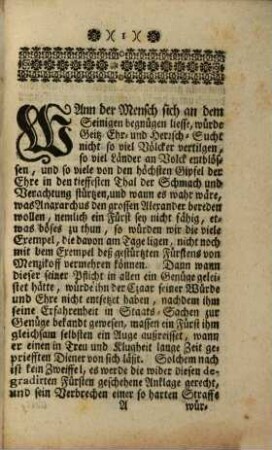 )( 1 )(
WAnn der Mensch sich an dem
Seinigen begnügen liesse, würde
Geitz Ehr- und Herrsch-Sucht
nicht so viel Völcker vertilgen,
so viel Länder an Volck entblös-
sen, und so viele von den höchsten Gipfel der
Ehre in den tieffesten Thal der Schmach und
Verachtung stürtzen, und wann es wahr wäre,
was Anararchus den grossen Alexander bereden
wollen, nemlich ein Fürst sey nicht fähig, et-
was böses zu thun, so würden wir die viele
Exempel, die davon am Tage ligen, nicht noch
mit dem Exempel deß gestürtzten Fürstens von
Menzikoff vermehren können. Dann wann
dieser seiner Pflicht in allen ein Genüge gelei-
stet hätte, würde ihn der Czaar seiner Würde
und Ehre nicht entsetzet haben, nachdem ihm
seine Erfahrenheit in Staats-Sachen zur
Genüge bekandt gewesen, massen ein Fürst ihm
gleichsam selbsten ein Auge außreisset, wann
er einen in Treu und Klugheit lange Zeit ge-
priefften Diener von sich läst. Solchem nach
ist kein Zweiffel, es werde die wider diesen de-
gradirten Fürsten geschehene Anklage gerecht,
und sein Verbrechen einer so harten Straffe
A wür-